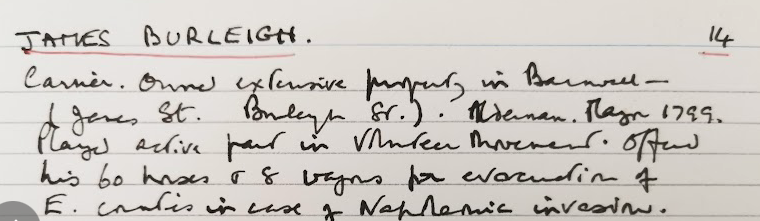 JAMES BURLEIGH. 14
Carrier. Owned extensive property in Barnwell –
(James St. Burleigh St.). Alderman. Mayor 1799.
Played active part in Volunteer Movement. Offered
his 60 horses & 8 wagons for evacuation of
E. counties in case of Napoleonic invasion.